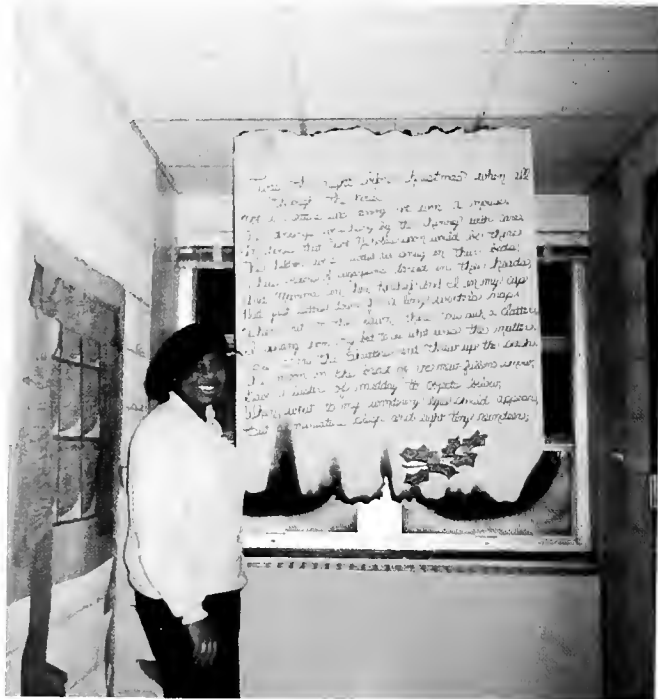 Twas the night before Christmas when all
through the house
Not a creature was not even a mouse
The hung by the chimney with care
In that Saint Nicholas soon would be there
The children were so snug in their beds
visions of in their heads
And Mamma in her and I in my cap
Had just settled down for a long winters nap
When out on the lawn there rose such a clatter
I sprang from my bed to see what was the matter
the shutters and threw up the
The moon on the breast of the new fallen snow
Gave a luster of midday to objects below
When what to my wondering eyes should appear,
But a miniature sleigh and eight tiny reindeer,